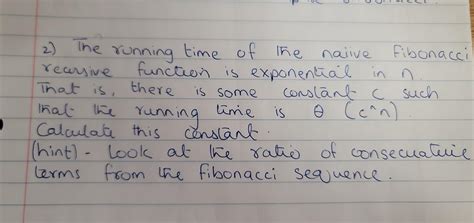 2) The running time of the naiive Fibonacci
recursive function is exponential in n.
That is, there is some constant c, such
that the running time is θ (c^n)
Calculate this constant.
(hint) - Look at the ratio of consecuative
terms from the fibonacci sequence.